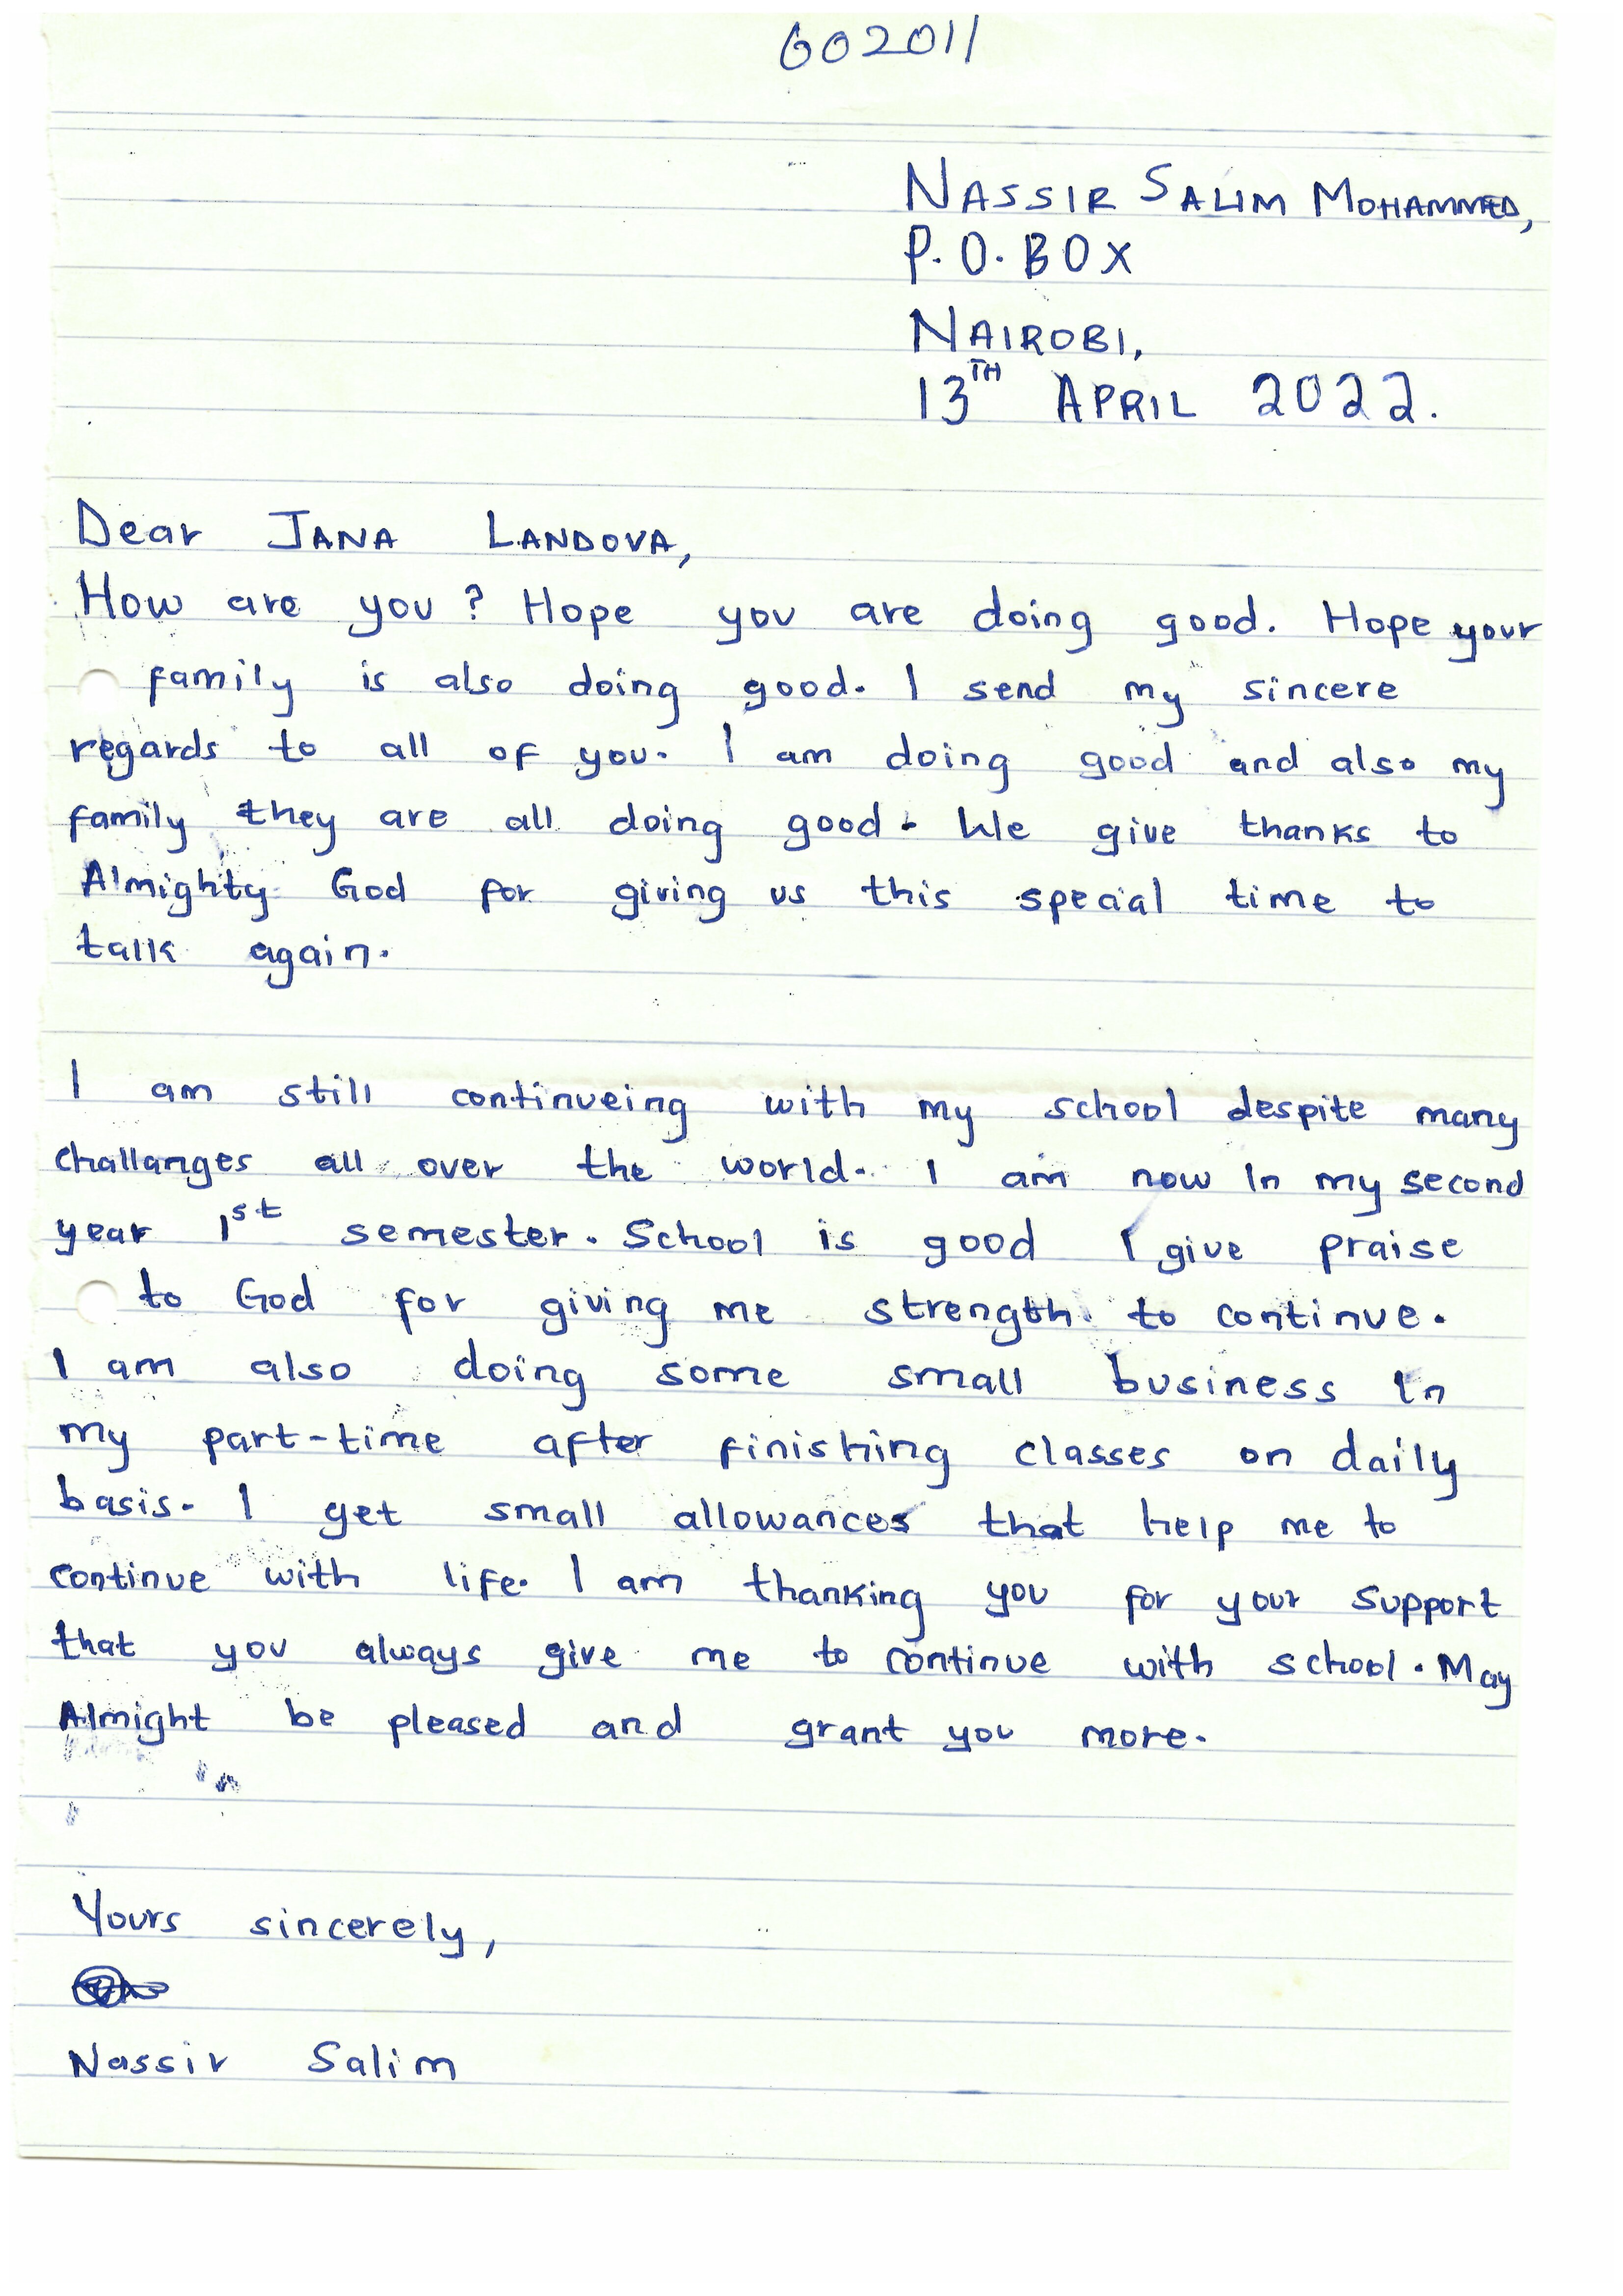 602011
NASSIR SALIM MOHAMMED,
P.O.BOX
NAIROBI,
13TH APRIL 2022.
Dear JANA LANDOVA,
How are you? Hope you are doing good. Hope your
family is also doing good. I send my sincere
regards to all of you. I am doing good and also my
family they are all doing good. We give thanks to
Almighty God for giving us this special time to
talk again.
I am still continueing with my school despite many
challanges all over the world. I am now In my second
year 1st semester. School is good I give praise
to God for giving me strength to continue.
I am also doing some small business In
my part-time after finishing classes on daily
basis. I get small allowances that help me to
continue with life. I am thanking you for your support
that you always give me to continue with school. May
Almight be pleased and grant you more.
Yours sincerely,
Nassir Salim